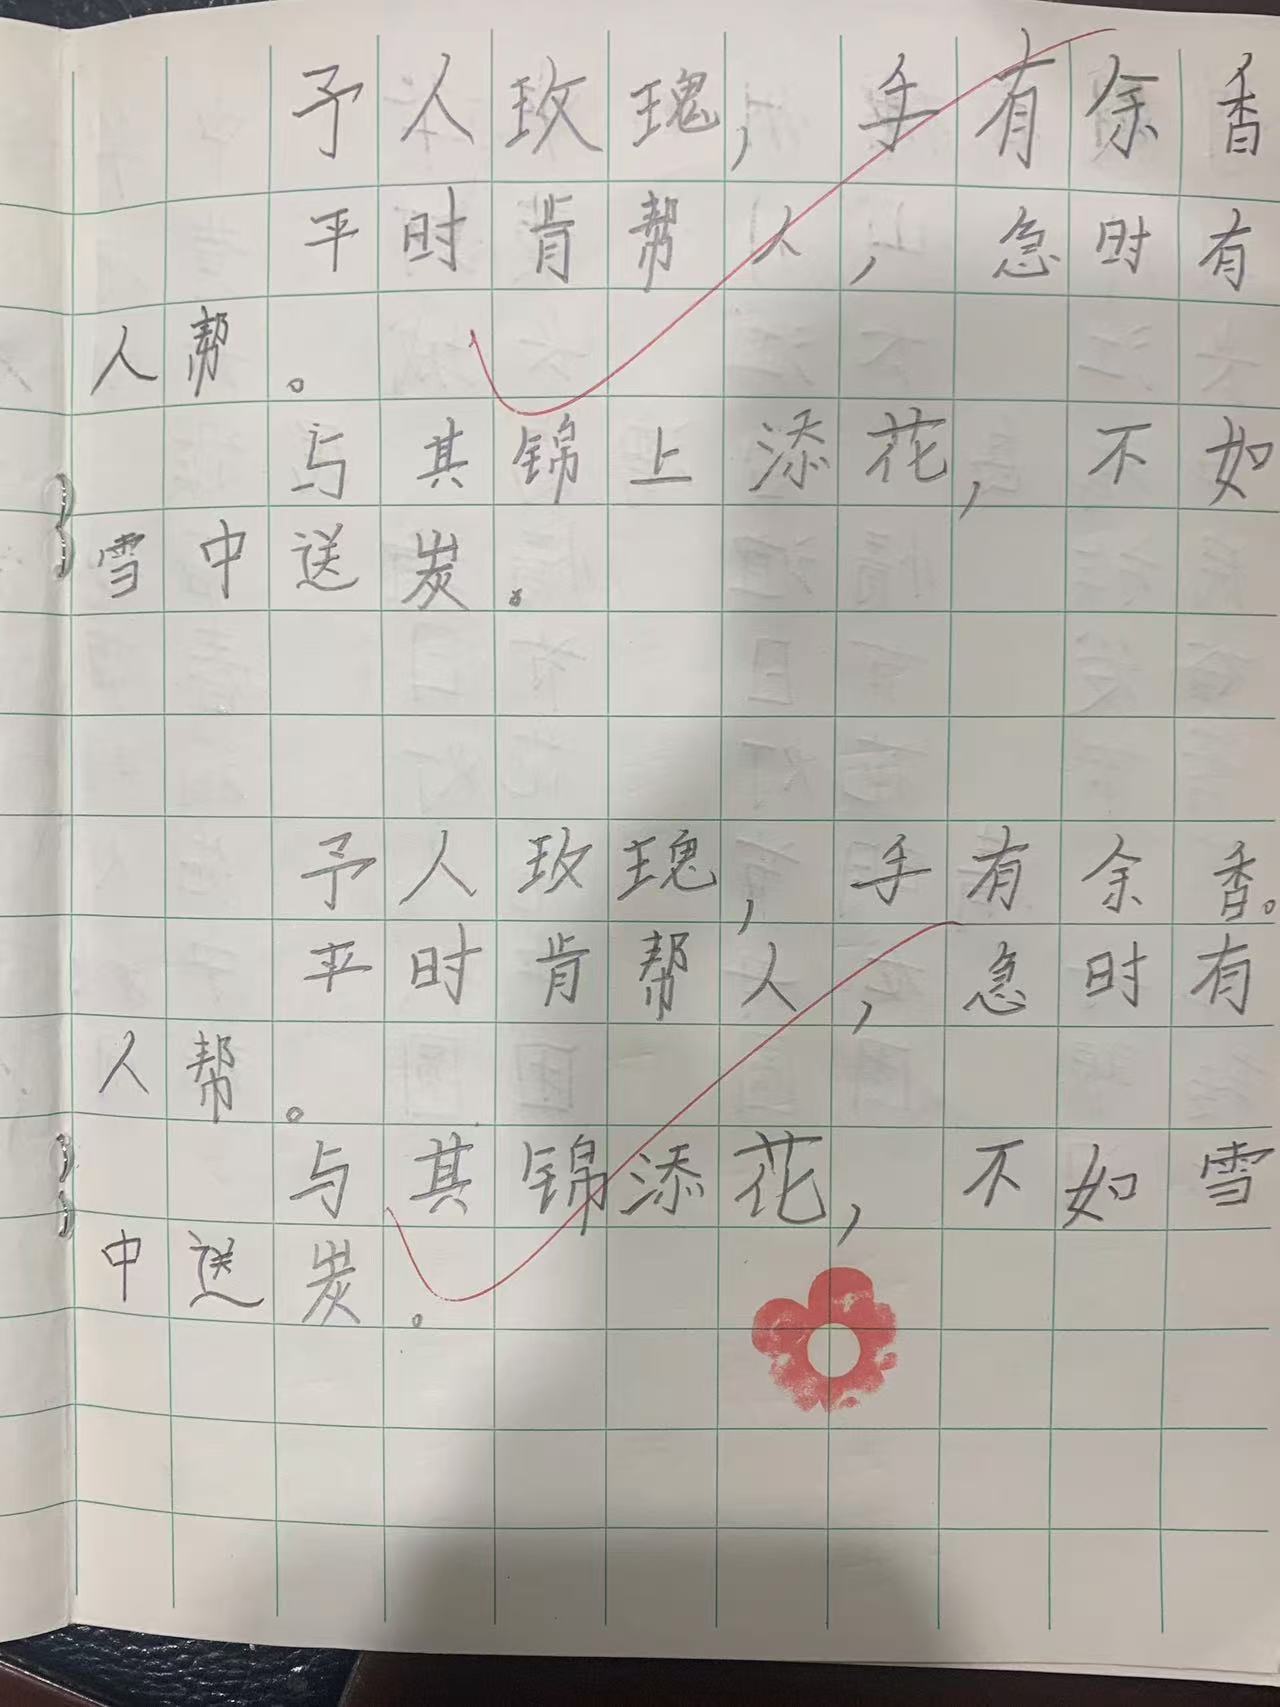 予人玫瑰，手有余香
平时肯帮人，急时有
人帮。
与其锦上添花，不如
雪中送炭。
予人玫瑰，手有余香。
平时肯帮人，急时有
人帮。
与其锦添花，不如雪
中送炭。